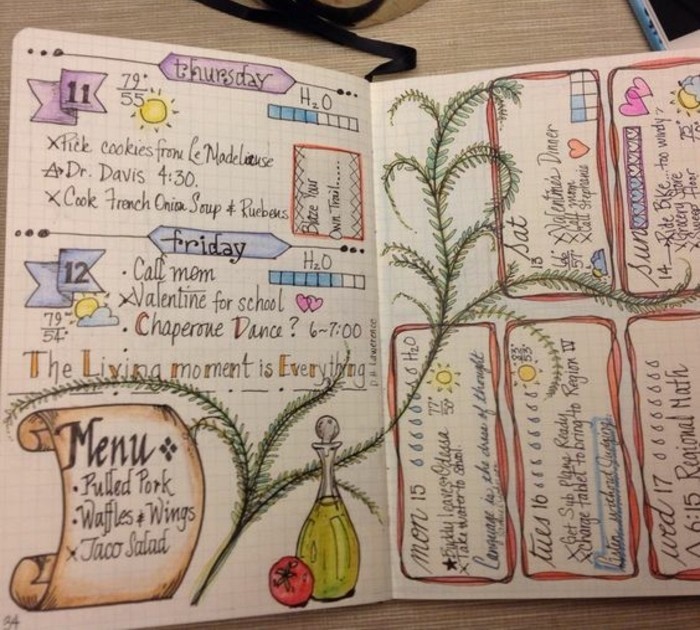 thursday
11
79°
55
H2O
XPick cookies from Le Madeliuse
Dr. Davis 4:30.
X Cook French Onion Soup & Ruebens
Blaze Your
Own Trail.....
friday
12
79°
54°
H2O
• Call mom
XValentine for school
• Chaperone Dance? 6-7:00
The Living moment is Everything
D.H. Lawerence
Menu
• Pulled Pork
• Waffles & Wings
X Taco Salad
34
Sat
13
57
X Valentine's Dinner
X Call mom
X Call Stephanie
sun
14
Ride Bike...too windy
Grocery Store
75°
mon 15
H2O
77°
50°
Take water to school.
Language is the dress of thought
tues 16
83°
53°
X Get Sub Plans Ready
X Charge tablet to bring to Region IV
wed 17
6:15 Regional Math